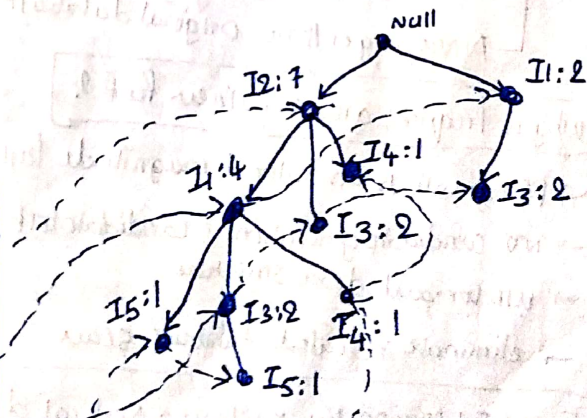 Null
I2:7
I1:2
I4:1
I1:4
I3:2
I3:2
I5:1
I3:2
I4:1
I5:1